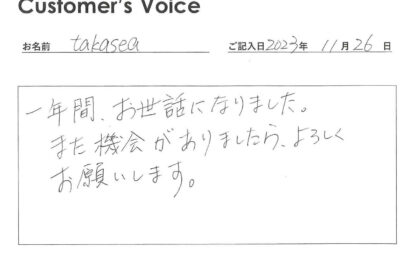 Customer's Voice
お名前 takasea ご記入日2023年 11月26日
一年間、お世話になりました。
また機会がありましたら、よろしく
お願いします。